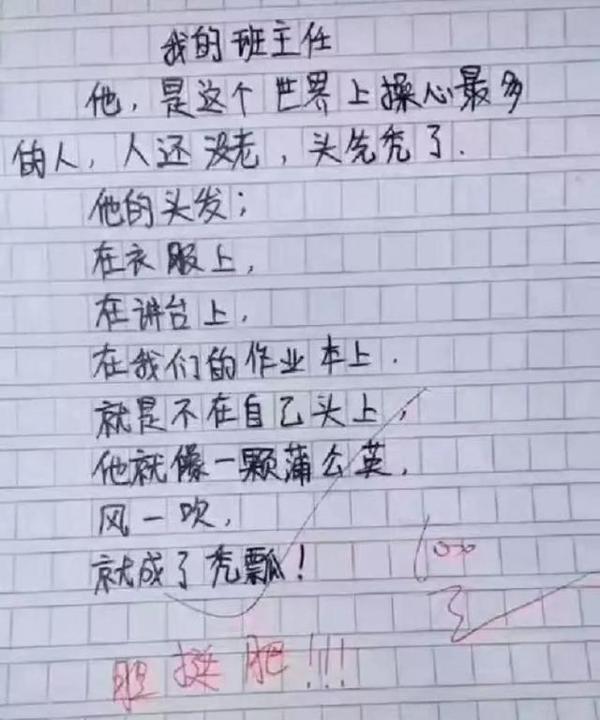 我的班主任
他，是这个世界上操心最多
的人，人还没老，头先秃了．
他的头发；
在衣服上，
在讲台上，
在我们的作业本上．
就是不在自己头上，
他就像一颗蒲公英，
风一吹，
就成了秃瓢！
100
胆挺肥!!!